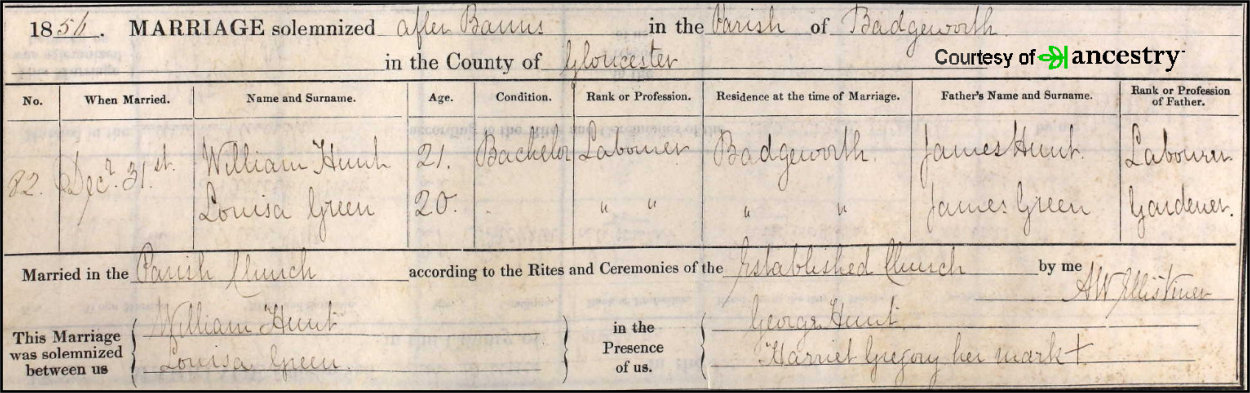 1854. MARRIAGE solemnized after Banns in the Parish of Badgeworth
in the County of Gloucester
Courtesy of ancestry
No. When Married. Name and Surname. Age. Condition. Rank or Profession. Residence at the time of Marriage. Father's Name and Surname. Rank or Profession of Father.
82. Decr. 31st. William Hunt 21. Bachelor Labourer Badgeworth. James Hunt. Labourer
Louisa Green 20. " " " " James Green Gardener.
Married in the Parish Church according to the Rites and Ceremonies of the Established Church by me
This Marriage was solemnized between us
William Hunt
Louisa Green.
in the Presence of us.
George Hunt
Harriet Gregory her mark +